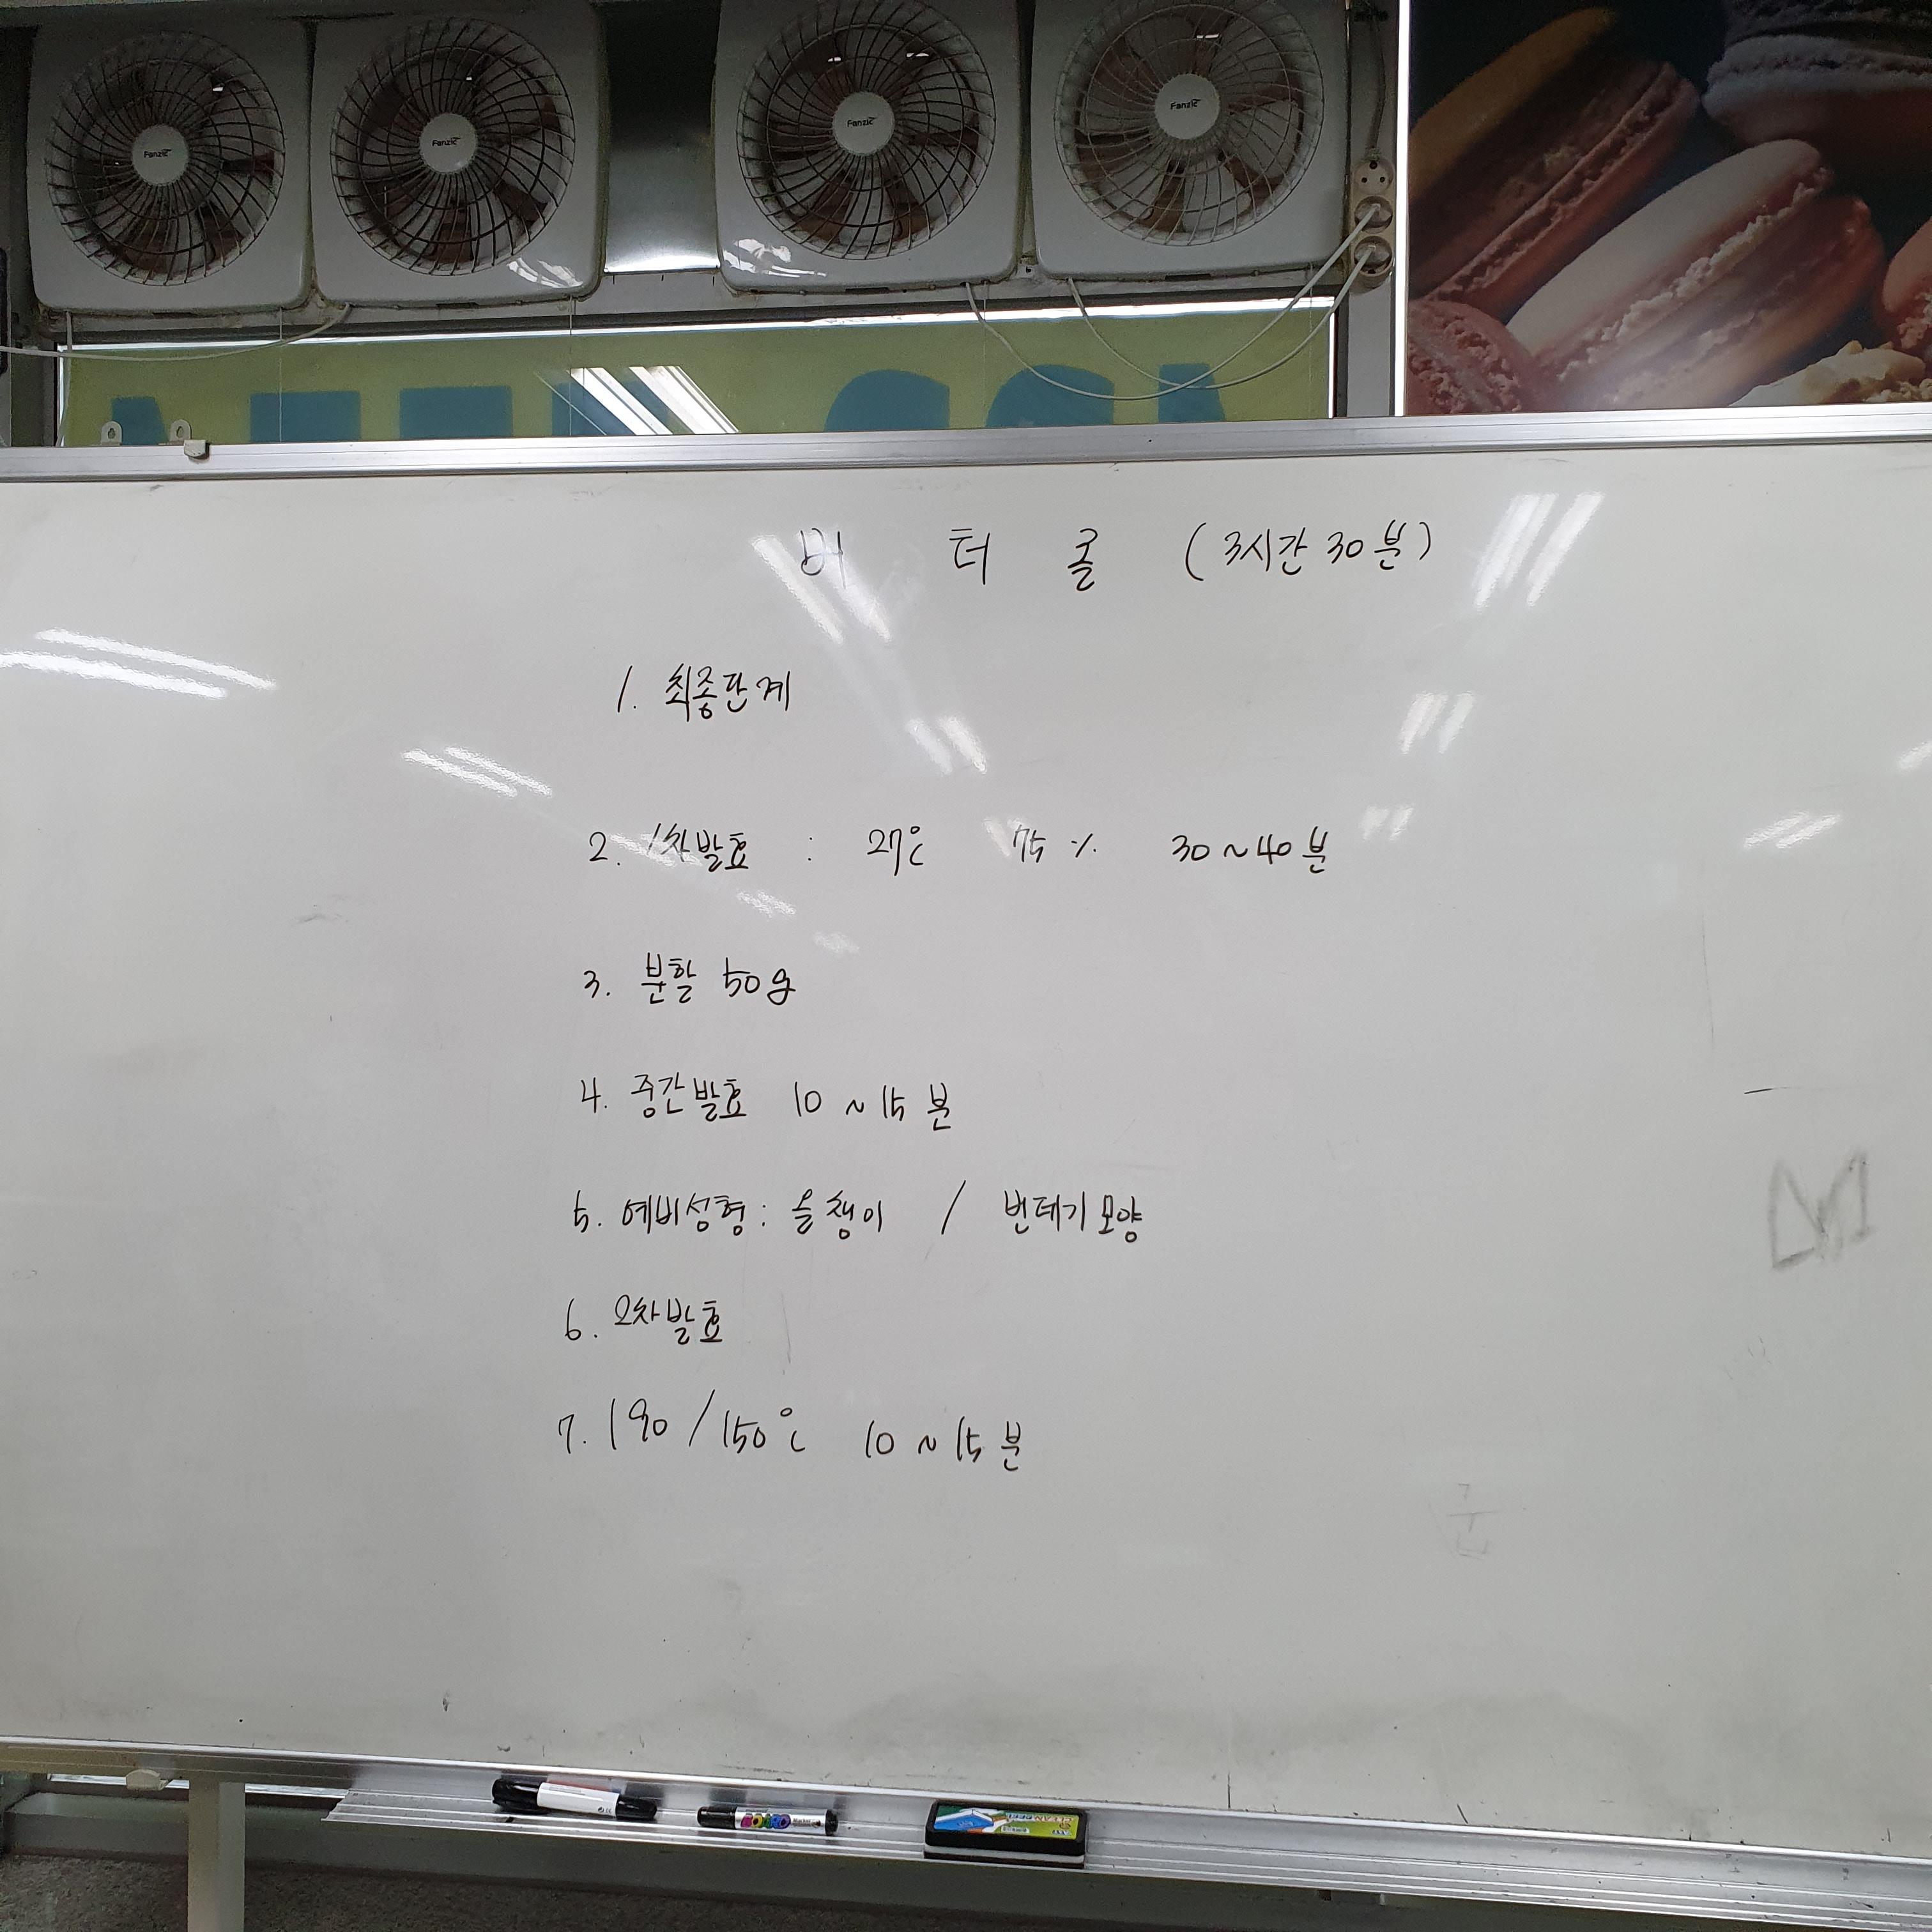 Fanzic Fanzic Fanzic Fanzic
버 터 롤 (3시간 30분)
1. 최종단계
2. 1차발효 : 27℃ 75% 30~40분
3. 분할 50g
4. 중간발효 10~15분
5. 예비성형: 올챙이 / 번데기모양
6. 2차발효
7. 190/150℃ 10~15분
BOARD Marker